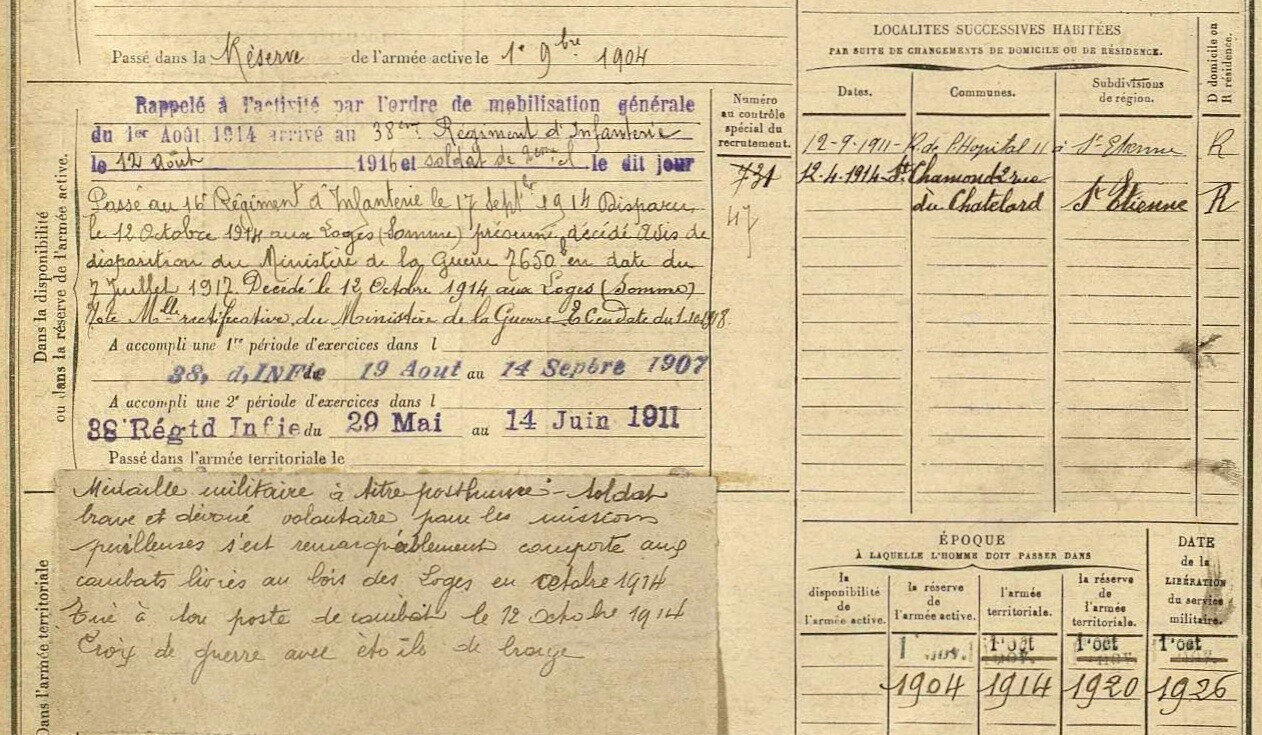 Passé dans la Réserve de l'armée active le 1er 9bre 1904
Dans la disponibilité
ou dans la réserve de l'armée active.
Rappelé à l'activité par l'ordre de mobilisation générale
du 1er Août 1914 arrivé au 38ème Régiment d'Infanterie
le 12 Août 1916 et soldat de 2ème cl le dit jour
Passé au 16e Régiment d'Infanterie le 17 Septbre 1914 Disparu
le 12 Octobre 1914 aux Loges (Somme) présumé décédé Avis de
disparition du Ministère de la Guerre 7650 en date du
7 Juillet 1917 Décédé le 12 Octobre 1914 aux Loges (Somme)
Note Mlle rectificative du Ministère de la Guerre E C en date du 1.10.1918
A accompli une 1re période d'exercices dans l
38, d, INFie du 19 Aout au 14 Sepbre 1907
A accompli une 2e période d'exercices dans l
38' Régtd Infie du 29 Mai au 14 Juin 1911
Passé dans l'armée territoriale le
Numéro
au contrôle
spécial du
recrutement.
731
47
Dans l'armée territoriale
Médaille militaire à titre posthume - Soldat
brave et dévoué volontaire pour les missions
périlleuses s'est remarquablement comporté aux
combats livrés au bois des Loges en octobre 1914
Tué à son poste de combat le 12 octobre 1914
Croix de guerre avec étoile de bronze
LOCALITES SUCCESSIVES HABITÉES
PAR SUITE DE CHANGEMENTS DE DOMICILE OU DE RÉSIDENCE.
Dates. Communes. Subdivisions de région. D domicile ou R résidence.
12-9-1911 R de l'Hopital 11 à St Etienne R
12.4.1914 St Chamond 2 rue
du Chatelard St Etienne R
ÉPOQUE
À LAQUELLE L'HOMME DOIT PASSER DANS
la disponibilité de l'armée active.
la réserve de l'armée active.
l'armée territoriale.
la réserve de l'armée territoriale.
DATE de la LIBÉRATION du service militaire.
1 nov. 1'oct 1'oct 1'oct
nov. nov. nov.
1904 1914 1920 1926